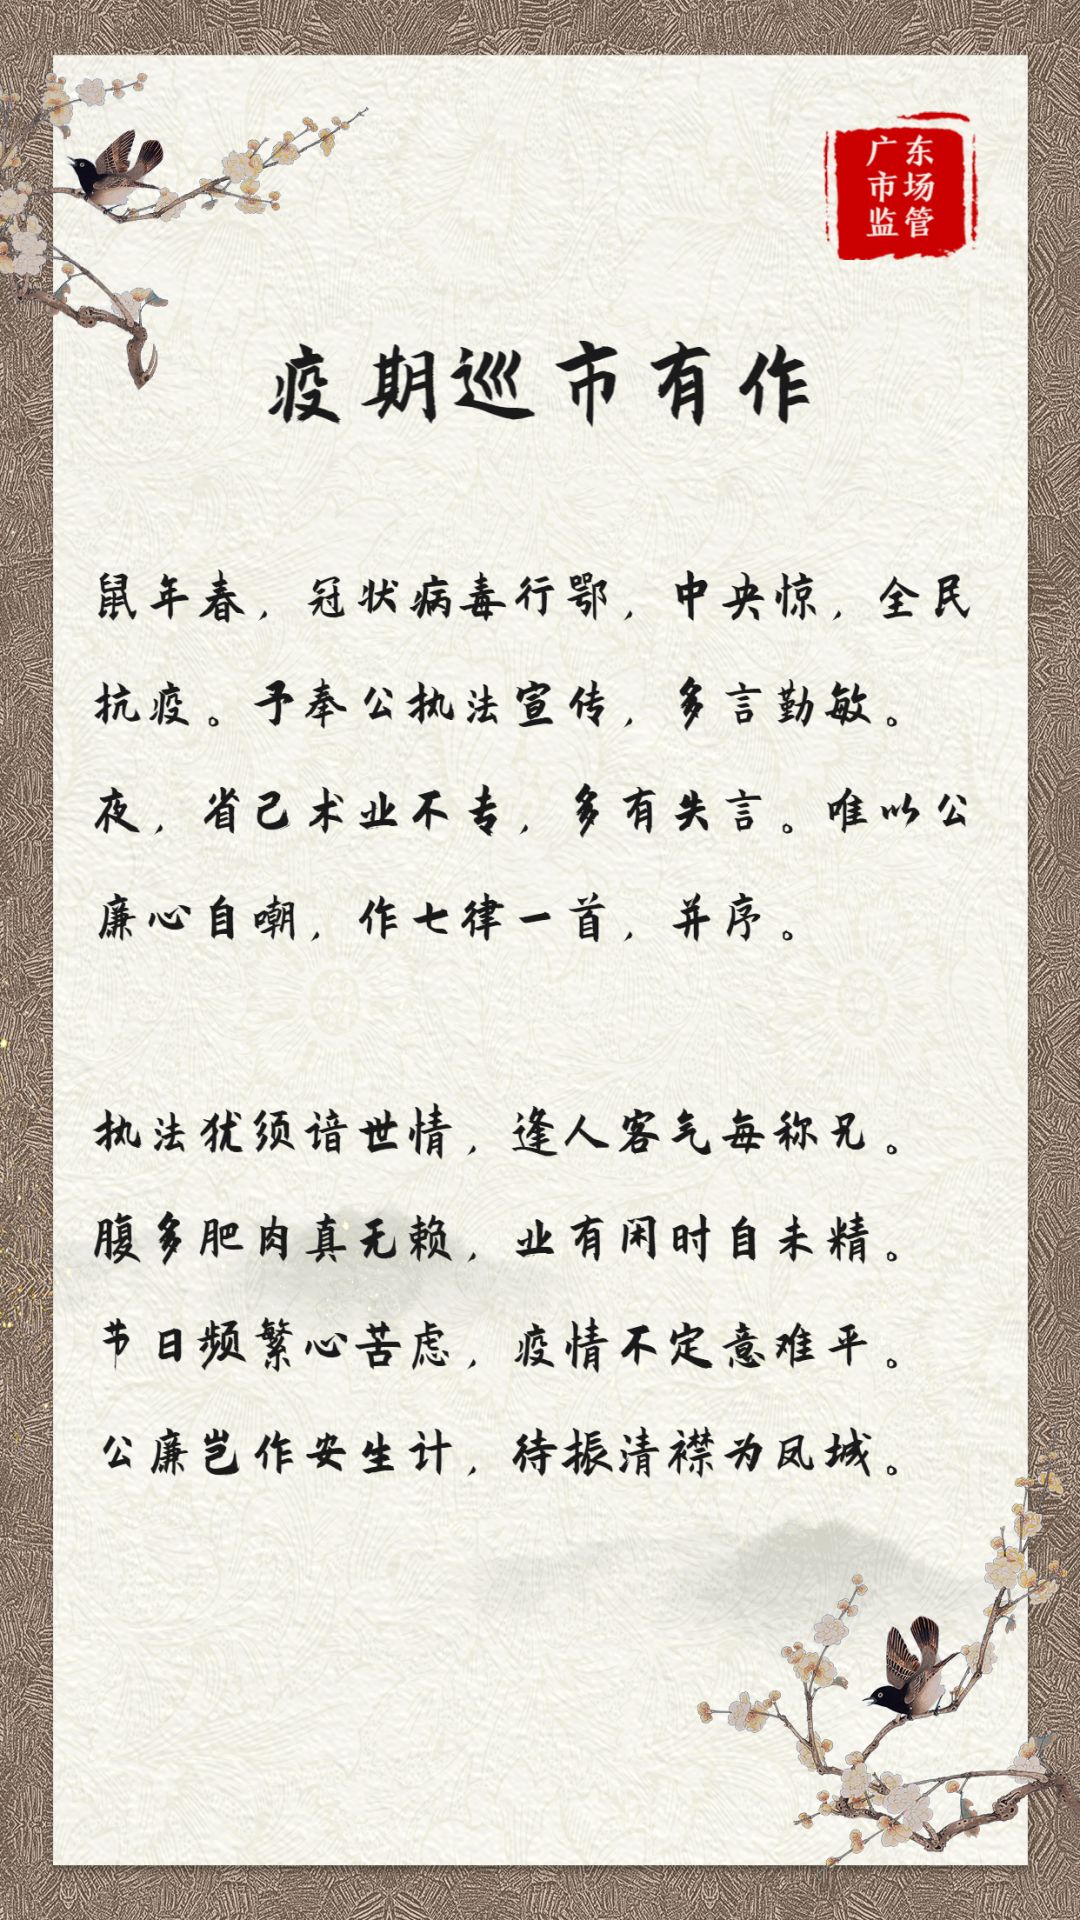 广东
市场
监管
疫期巡市有作
鼠年春，冠状病毒行鄂，中央惊，全民
抗疫。予奉公执法宣传，多言勤敏。
夜，省己术业不专，多有失言。唯以公
廉心自嘲，作七律一首，并序。
执法犹须谙世情，逢人客气每称兄。
腹多肥肉真无赖，业有闲时自未精。
节日频繁心苦虑，疫情不定意难平。
公廉岂作安生计，待振清襟为凤城。